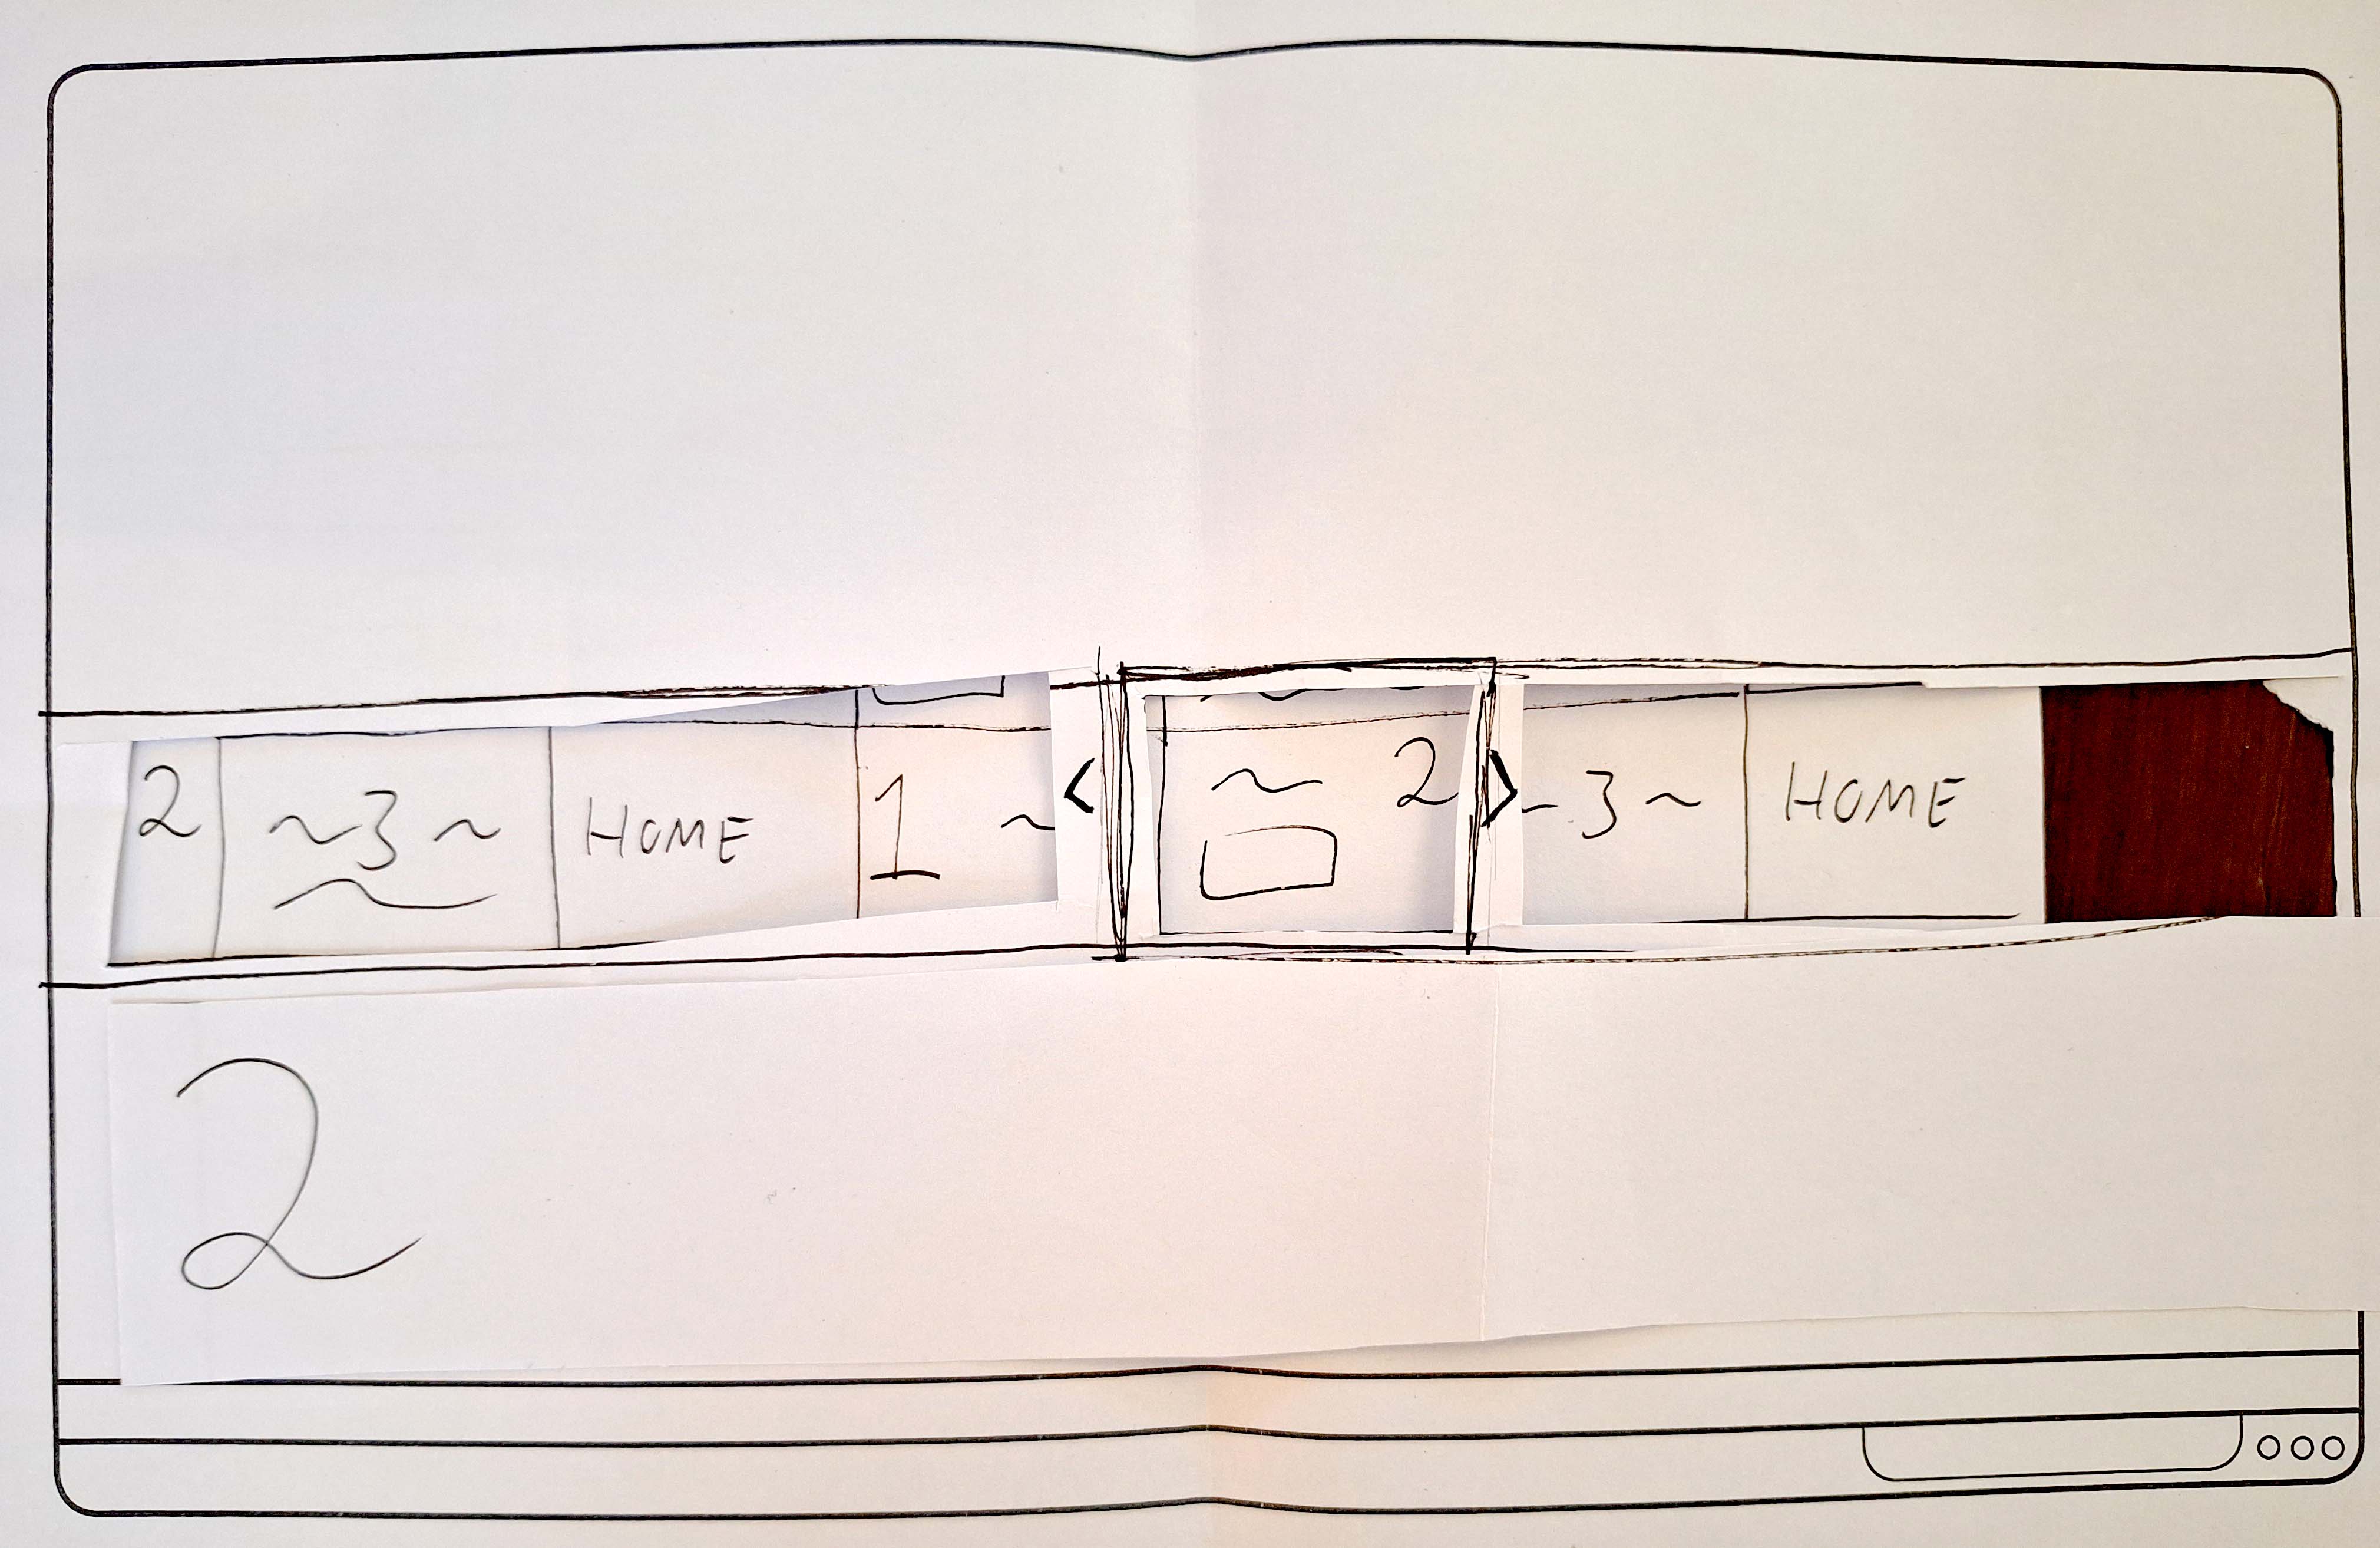 2 ~3~ HOME 1 ~ < ~ 2 > ~3~ HOME
2